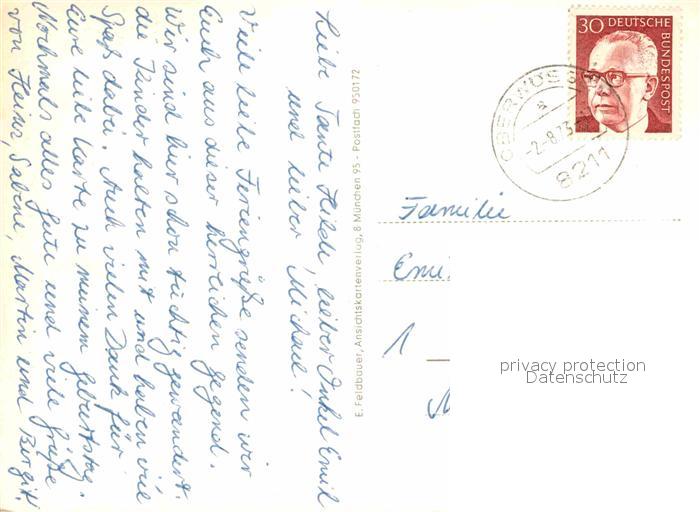 Liebe Tante Hilde, lieber Onkel Emil
und lieber Michael!
Viele liebe Feriengrüße senden wir
Euch aus dieser herrlichen Gegend.
Wir sind hier schon tüchtig gewandert.
die Kinder halten mit und haben viel
Spaß dabei. Auch vielen Dank für
Eure liebe Karte zu meinem Geburtstag.
Nochmals alles Gute und viele Grüße
von Heinz, Sabine, Martin und Birgit
E. Feldbauer, Ansichtskartenverlag, 8 München 95 - Postfach 950172
30 DEUTSCHE
BUNDESPOST
a
-2.-8.73
8211
Familie
Emi
1
privacy protection
Datenschutz